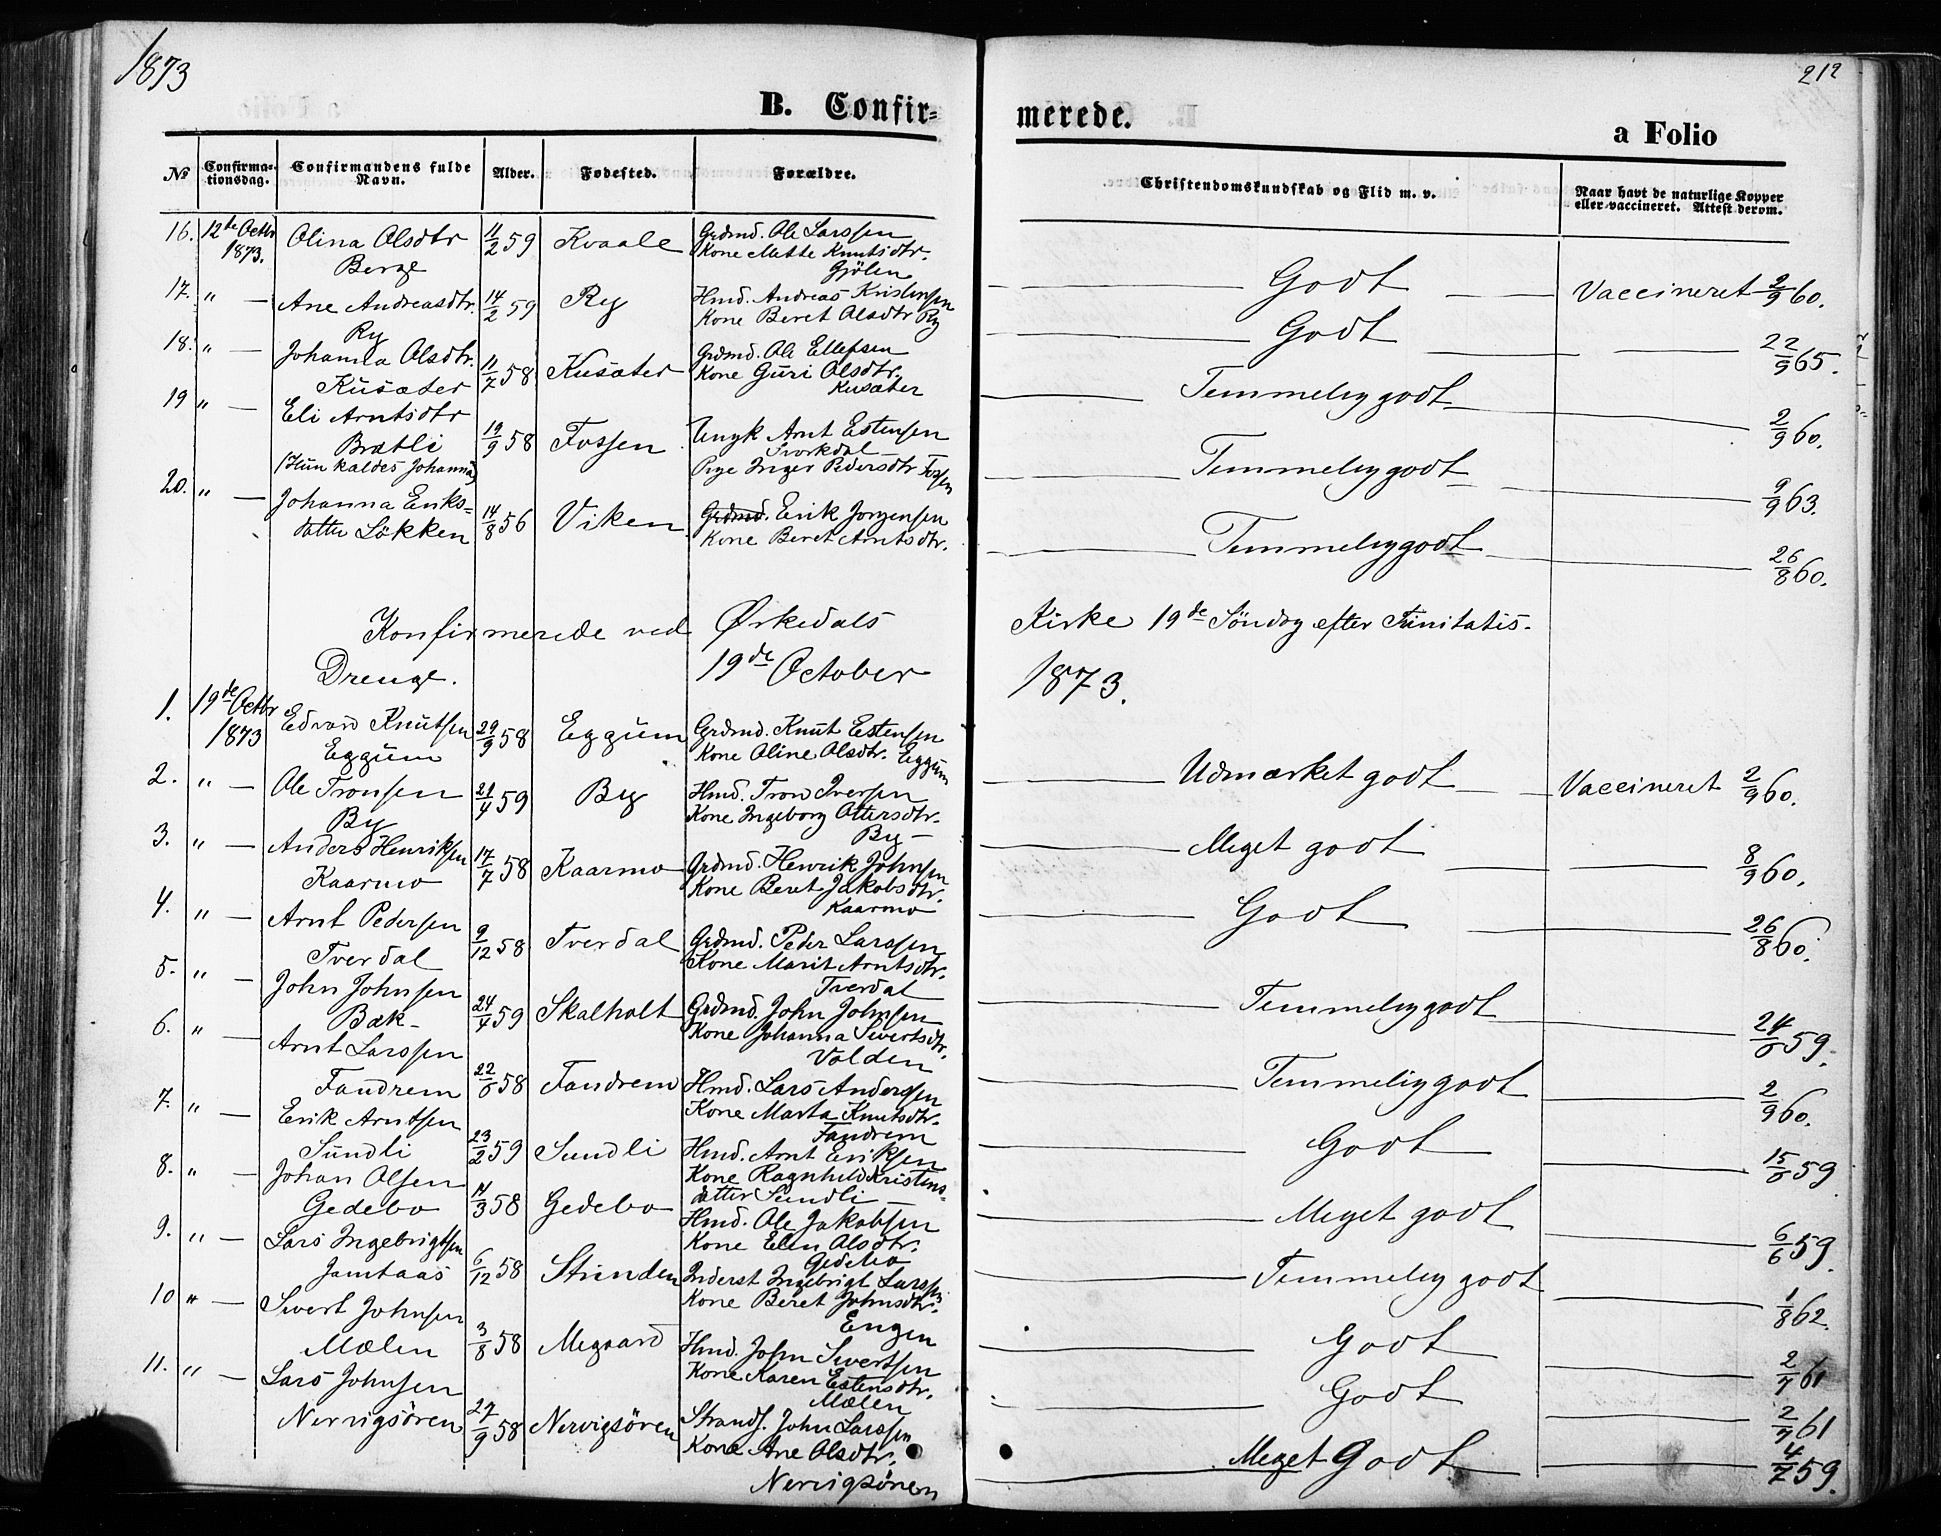 1873
212
B. Confir-
merede.
a Folio
No
Confirma-
tionsdag.
Confirmandens fulde
Navn.
Alder.
Fødested.
Forældre.
Christendomskundskab og Flid m. v.
Naar havt de naturlige Kopper
eller vaccineret. Attest derom.
16. 12te Octbr 1873. Olina Olsdtr Berge 11/2 59 Kvaale Grdmd. Ole Larssen Kone Mette Knutsdtr. Gjölen Godt Vaccineret 2/9 60.
17. " — Ane Andreasdtr. Ry 14/2 59 Ry Hmd. Andreas Kristensen Kone Beret Olsdtr Ry Godt 22/9 65.
18. " — Johanna Olsdtr. Kusæter 11/7 58 Kusæter Grdmd. Ole Ellefsen Kone Guri Olsdtr. Kusæter Temmelig godt 2/9 60.
19 " — Eli Arntsdtr Brætli (Hun kaldes Johanna) 19/9 58 Fossen Ungk Arnt Estensen Pige Inger Pedersdtr Fossen Temmelig godt 9/9 63.
20. " — Johanna Eriks-datter Lökken 14/8 56 Viken Grdmd. Erik Jorgensen Kone Beret Arntsdtr. Temmelig godt 26/8 60.
Konfirmerede ved Ørkedals Kirke 19de Söndag efter Trinitatis.
Drenge. 19de October 1873.
1. 19de Octbr 1873 Edvard Knutsen Eggum 29/9 58 Eggum Grdmd. Knut Estensen Kone Oline Olsdtr. Eggum Udmærket godt Vaccineret 2/9 60.
2. " — Ole Tronsen By 21/4 59 By Hmd. Tron Iversen Kone Ingeborg Ottersdtr. By — Meget godt 8/9 60.
3. " — Anders Henriksen Kaarmo 17/7 58 Kaarmo Grdmd. Henrik Johnsen Kone Beret Jakobsdtr. Kaarmo Godt 26/8 60.
4. " — Arnt Pedersen Tverdal 9/12 58 Tverdal Grdmd. Peder Larssen Kone Marit Arntsdtr. Tverdal Temmelig godt 24/ 59.
5. " — John Johnsen Bæk- 24/4 59 Skalholt Grdmd. John Johnsen Kone Johanna Sivertsdtr. Volden Temmelig godt 2/9 60.
6. " — Arnt Larssen Fandrem 22/ 58 Fandrem Hmd. Lars Anderssen Kone Marta Knutsdtr. Fandrem Godt 15/ 59
7. " — Erik Arntsen Sundli 23/2 59 Sundli Hmd. Arnt Eriksen Kone Ragnhild Kristens-datter Sundli — Meget godt 6/6 59.
8. " — Johan Olsen Gedebo 11/3 58 Gedebo Hmd. Ole Jakobsen Kone Elen Olsdtr. Gedebo Temmelig godt 1/8 62.
9. " — Lars Ingebrigtsen Jamtaas 6/12 58 Stunden Inderst Ingebrigt Larssen Kone Beret Johnsdtr. Engen Godt 2/7 61
10 " — Sivert Johnsen Mælen 3/8 58 Megaard Hmd. John Sivertsen Kone Karen Estensdtr. Mælen Godt 2/7 61
11. " — Lars Johnsen Nervigsören 27/9 58 Nervigsören Strands. John Larssen Kone Ane Olsdtr. Nervigsören Meget Godt 4/7 59.